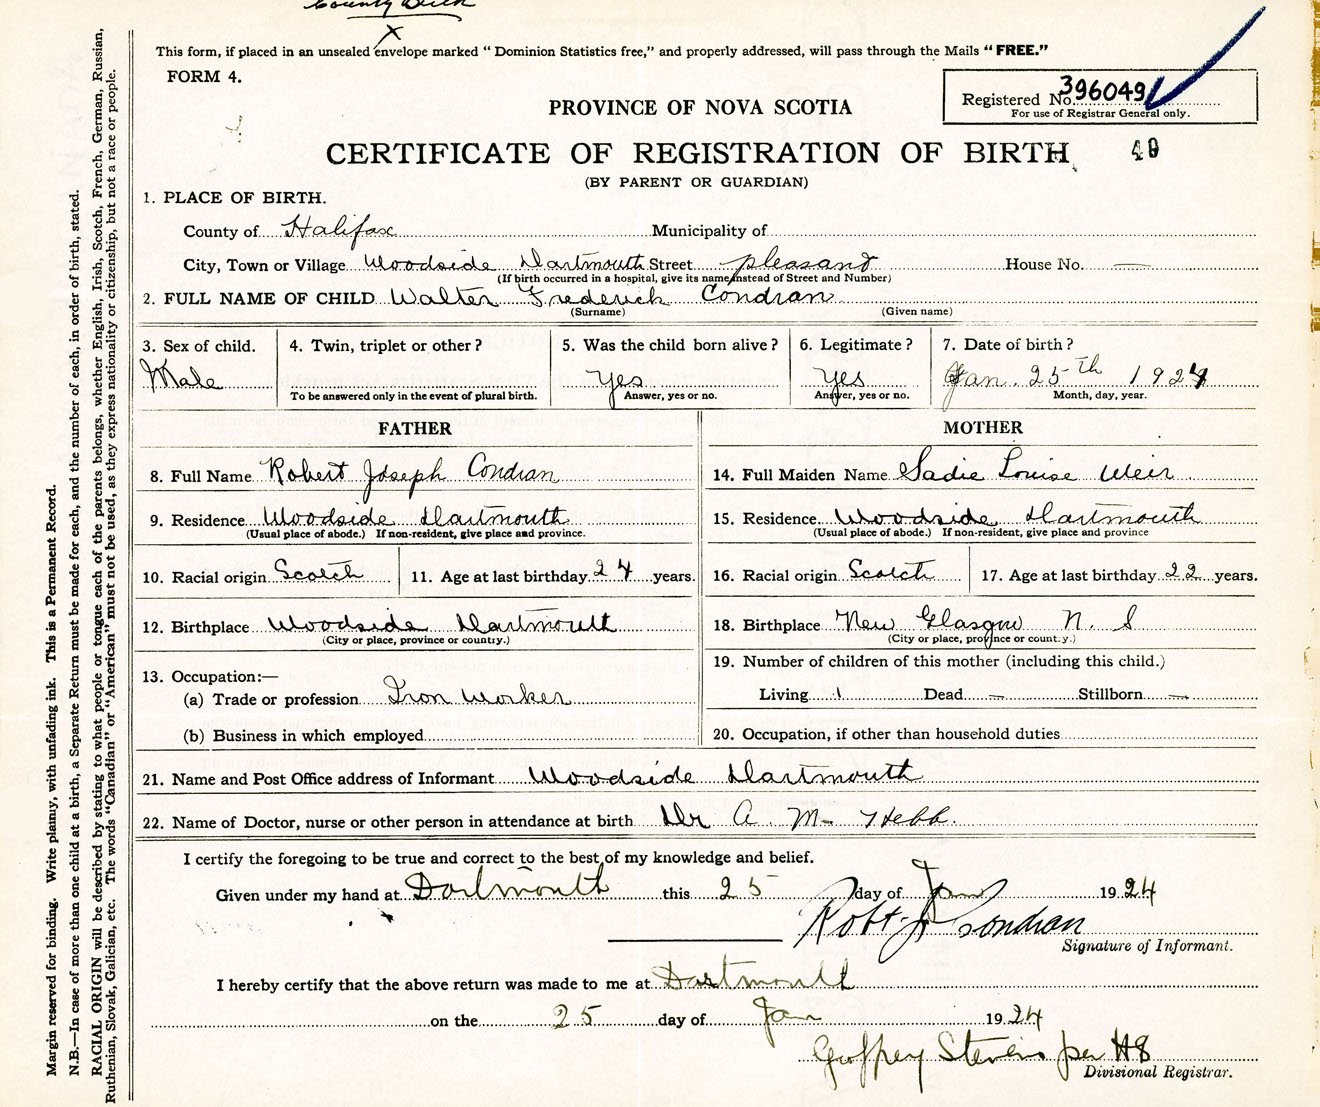 County Birth
X
This form, if placed in an unsealed envelope marked “Dominion Statistics free,” and properly addressed, will pass through the Mails “FREE.”
FORM 4.
Registered No. 396049
For use of Registrar General only.
PROVINCE OF NOVA SCOTIA
CERTIFICATE OF REGISTRATION OF BIRTH
(BY PARENT OR GUARDIAN)
1. PLACE OF BIRTH.
County of Halifax Municipality of
City, Town or Village Woodside Dartmouth Street pleasant House No. —
(If birth occurred in a hospital, give its name instead of Street and Number)
2. FULL NAME OF CHILD Walter Frederick Condran
(Surname) (Given name)
3. Sex of child. 4. Twin, triplet or other? 5. Was the child born alive? 6. Legitimate? 7. Date of birth?
Male Yes Yes Jan. 25th 1924
To be answered only in the event of plural birth. Answer, yes or no. Answer, yes or no. Month, day, year.
FATHER MOTHER
8. Full Name Robert Joseph Condran 14. Full Maiden Name Sadie Louise Weir
9. Residence Woodside Dartmouth 15. Residence Woodside Dartmouth
(Usual place of abode.) If non-resident, give place and province. (Usual place of abode.) If non-resident, give place and province
10. Racial origin Scotch 11. Age at last birthday 24 years. 16. Racial origin Scotch 17. Age at last birthday 22 years.
12. Birthplace Woodside Dartmouth 18. Birthplace New Glasgow N. S
(City or place, province or country.) (City or place, province or country.)
19. Number of children of this mother (including this child.)
13. Occupation:—
(a) Trade or profession Iron Worker Living 1 Dead — Stillborn —
(b) Business in which employed 20. Occupation, if other than household duties
21. Name and Post Office address of Informant Woodside Dartmouth
22. Name of Doctor, nurse or other person in attendance at birth Dr A. M. Hebb.
I certify the foregoing to be true and correct to the best of my knowledge and belief.
Given under my hand at Dartmouth this 25 day of Jan 1924
Robt J Condran
Signature of Informant.
I hereby certify that the above return was made to me at Dartmouth
on the 25 day of Jan 1924
Geoffrey Stevens per HS
Divisional Registrar.
Margin reserved for binding. Write plainly, with unfading ink. This is a Permanent Record.
N.B.—In case of more than one child at a birth, a Separate Return must be made for each, and the number of each, in order of birth, stated.
RACIAL ORIGIN will be described by stating to what people or tongue each of the parents belongs, whether English, Irish, Scotch, French, German, Russian,
Ruthenian, Slovak, Galician, etc. The words “Canadian” or “American” must not be used, as they express nationality or citizenship, but not a race or people.